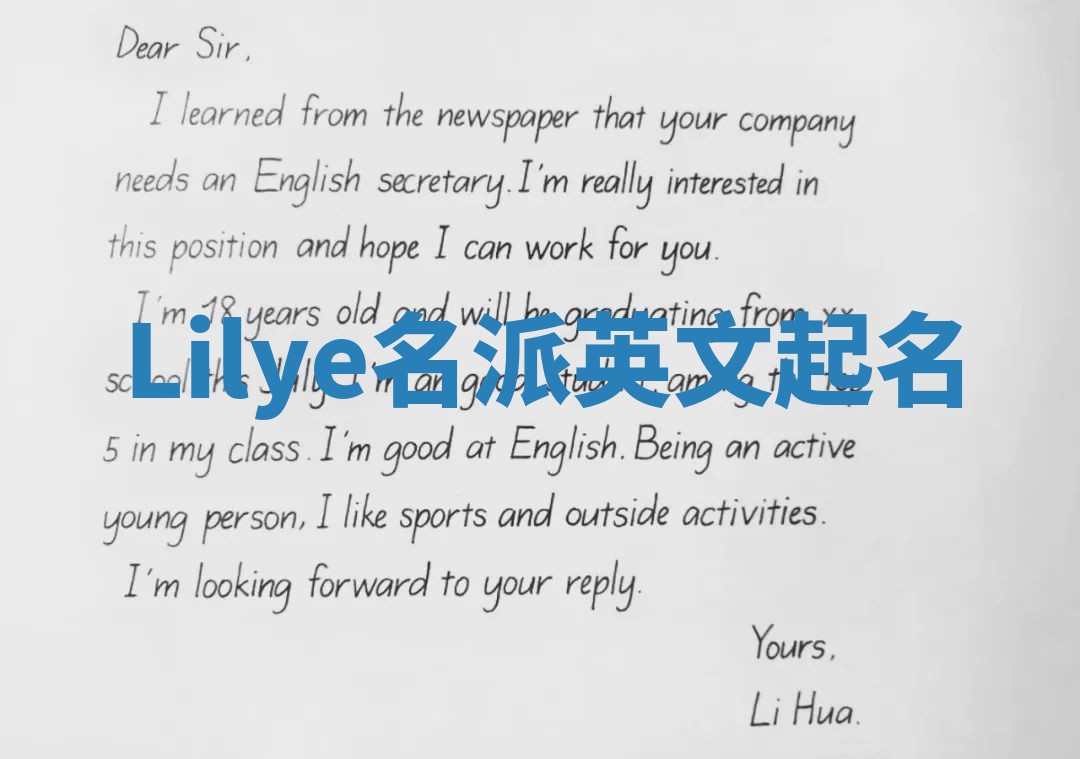 Dear Sir,
I learned from the newspaper that your company
needs an English secretary. I'm really interested in
this position and hope I can work for you.
I'm 18 years old and will be graduating from xx
Lilye名派英文起名
school this July. I'm an good student, among the top
5 in my class. I'm good at English. Being an active
young person, I like sports and outside activities.
I'm looking forward to your reply.
Yours,
Li Hua.